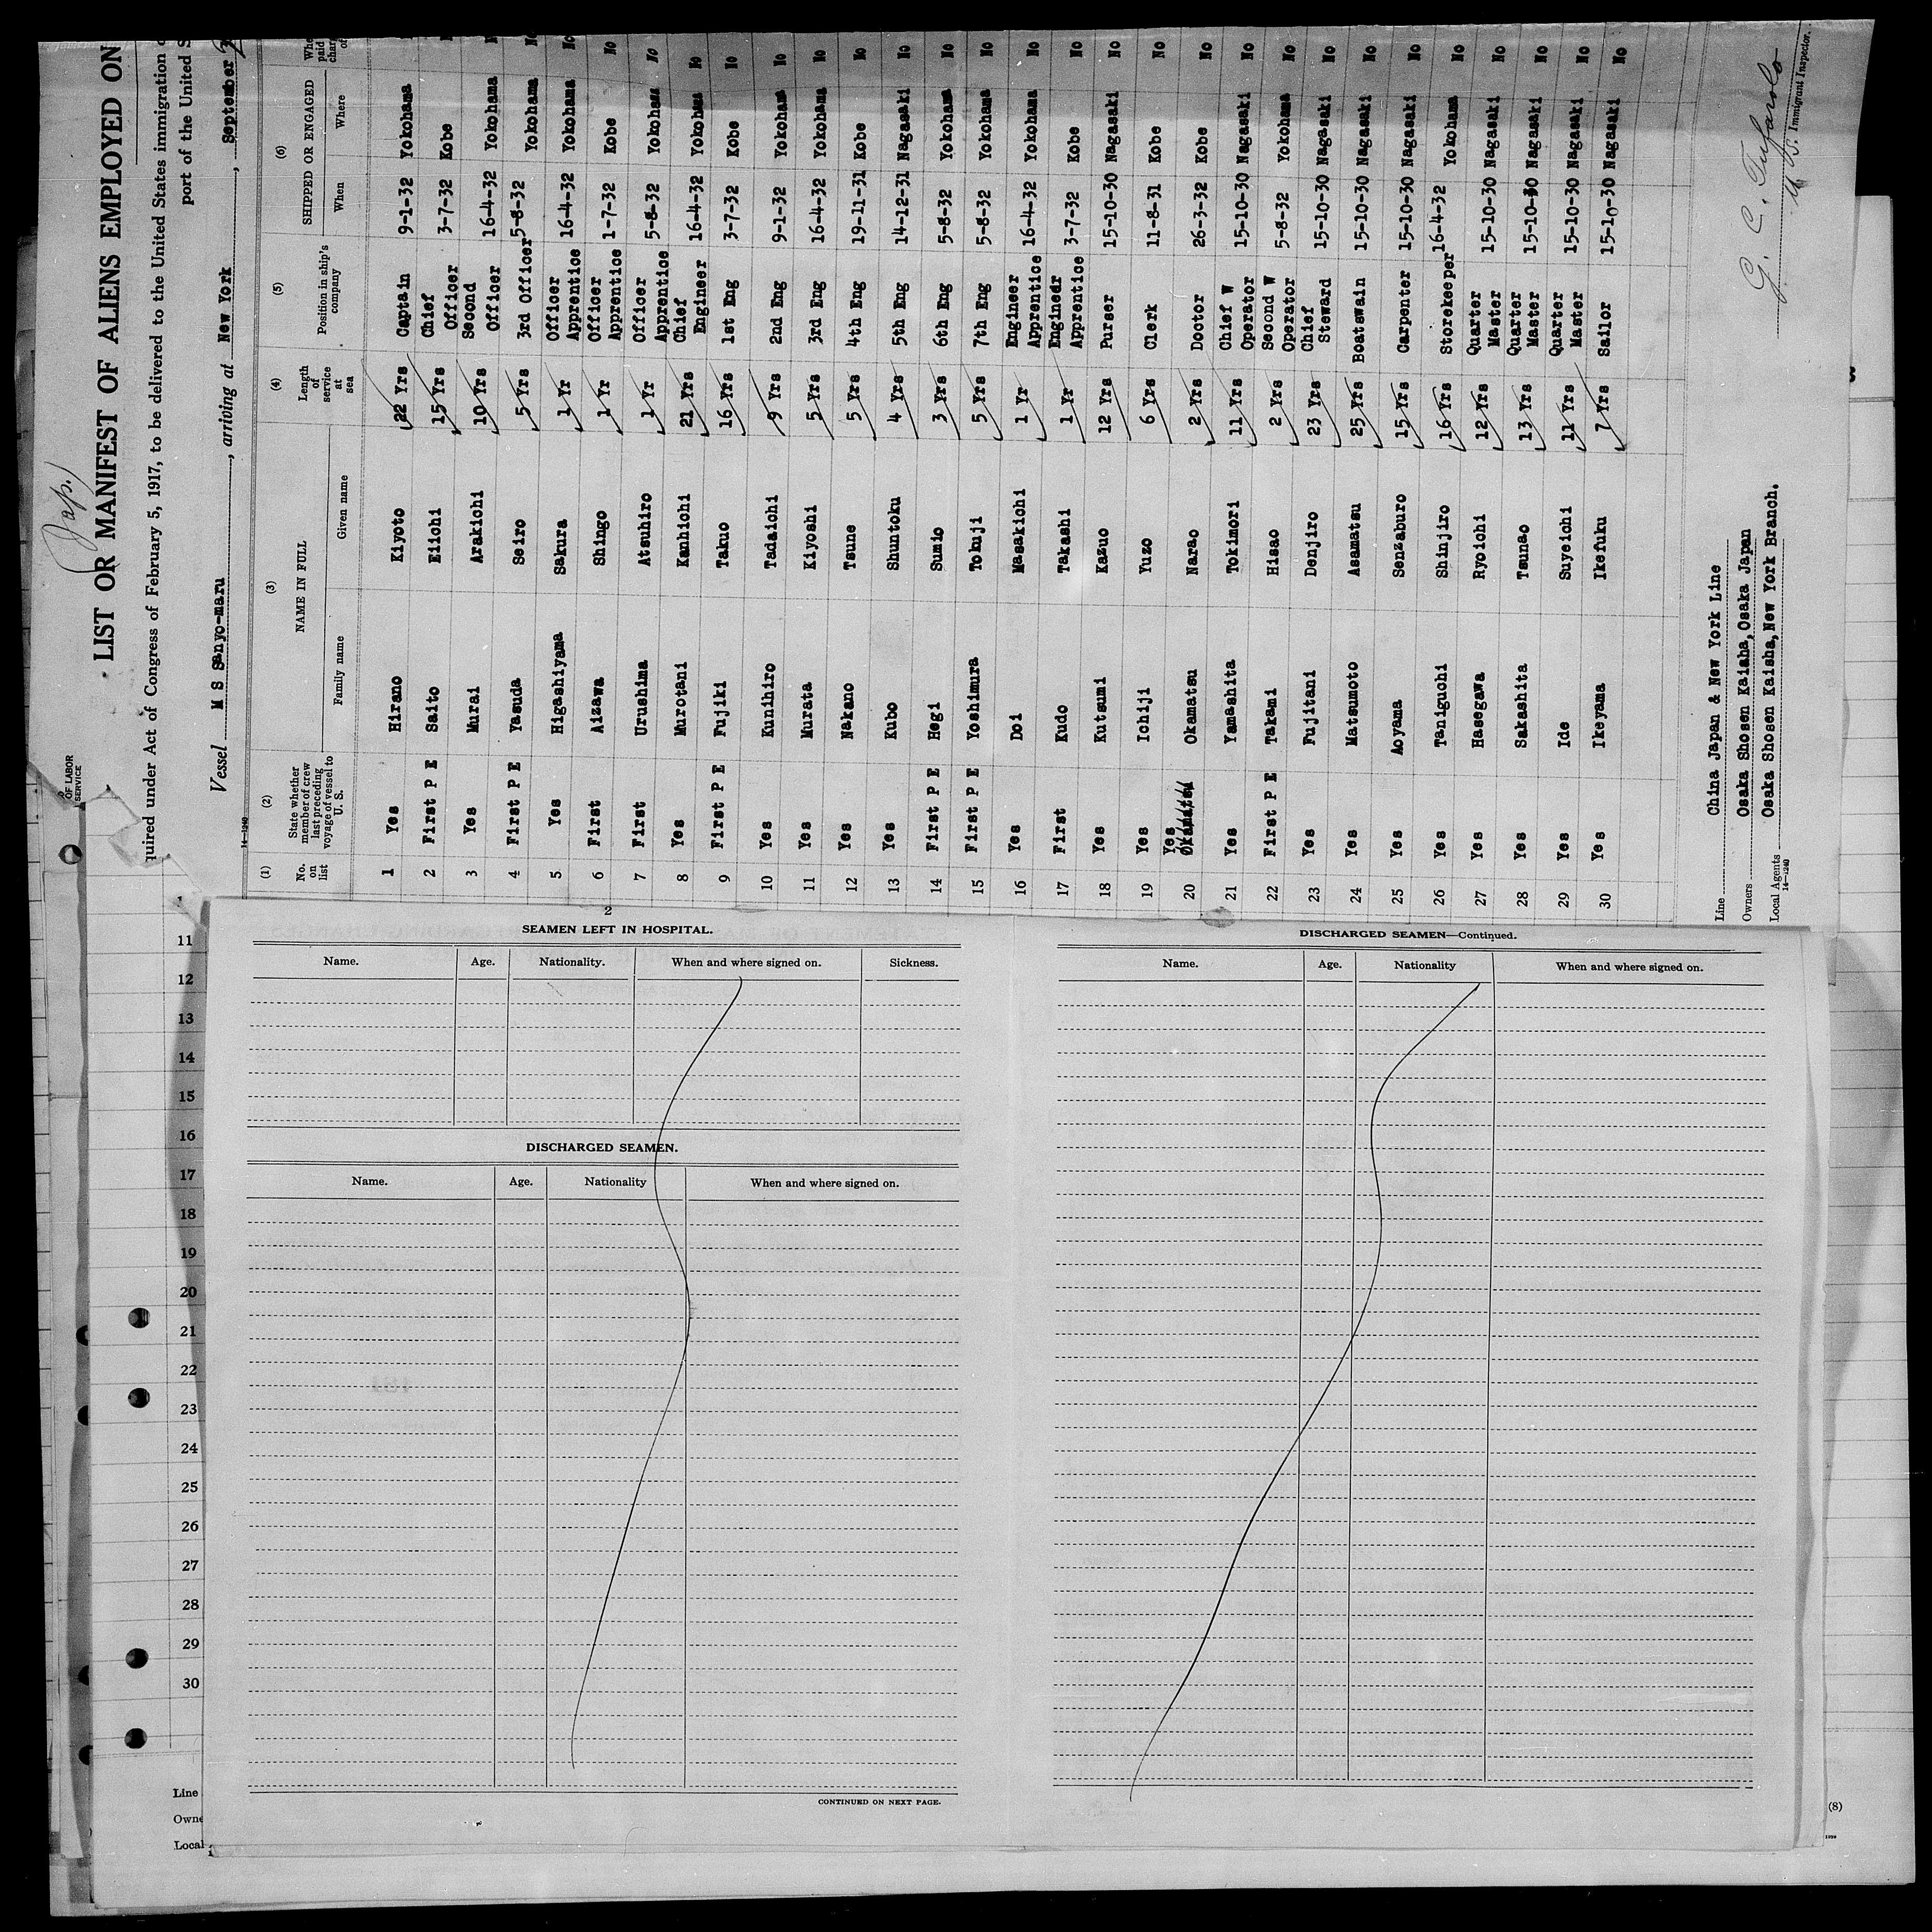 (Jap.)
LIST OR MANIFEST OF ALIENS EMPLOYED ON
quired under Act of Congress of February 5, 1917, to be delivered to the United States immigration
port of the United S
OF LABOR
SERVICE
Vessel M S Sanyo-maru, arriving at New York, September
14-1240
(1) (2) (3) (4) (5) (6)
No. on list State whether member of crew last preceding voyage of vessel to U. S. NAME IN FULL Length of service at sea Position in ship's company SHIPPED OR ENGAGED
Family name Given name When Where
1 Yes Hirano Kiyoto 22 Yrs Captain 9-1-32 Yokohama
2 First P E Saito Eiichi 15 Yrs Chief Officer 3-7-32 Kobe
3 Yes Murai Arakichi 10 Yrs Second Officer 16-4-32 Yokohama
4 First P E Yasuda Seiro 5 Yrs 3rd Officer 5-8-32 Yokohama No
5 Yes Higashiyama Sakura 1 Yr Officer Apprentice 16-4-32 Yokohama No
6 First Aizawa Shingo 1 Yr Officer Apprentice 1-7-32 Kobe No
7 First Urushima Atsuhiro 1 Yr Officer Apprentice 5-8-32 Yokohama No
8 Yes Murotani Kanhichi 21 Yrs Chief Engineer 16-4-32 Yokohama No
9 First P E Fujiki Takuo 16 Yrs 1st Eng 3-7-32 Kobe No
10 Yes Kunihiro Tadaichi 9 Yrs 2nd Eng 9-1-32 Yokohama No
11 Yes Murata Kiyoshi 5 Yrs 3rd Eng 16-4-32 Yokohama No
12 Yes Nakano Tsune 5 Yrs 4th Eng 19-11-31 Kobe No
13 Yes Kubo Shuntoku 4 Yrs 5th Eng 14-12-31 Nagasaki No
14 First P E Hegi Sumio 3 Yrs 6th Eng 5-8-32 Yokohama No
15 First P E Yoshimura Tokuji 5 Yrs 7th Eng 5-8-32 Yokohama No
16 Yes Doi Masakichi 1 Yr Engineer Apprentice 16-4-32 Yokohama No
17 First Kudo Takashi 1 Yr Engineer Apprentice 3-7-32 Kobe No
18 Yes Kutsumi Kazuo 12 Yrs Purser 15-10-30 Nagasaki No
19 Yes Ichiji Yuzo 6 Yrs Clerk 11-8-31 Kobe No
20 Yes Okamatsu Okamatsu Narao 2 Yrs Doctor 26-3-32 Kobe No
21 Yes Yamashita Tokimori 11 Yrs Chief W Operator 15-10-30 Nagasaki No
22 First P E Takami Hisao 2 Yrs Second W Operator 5-8-32 Yokohama No
23 Yes Fujitani Denjiro 23 Yrs Chief Steward 15-10-30 Nagasaki No
24 Yes Matsumoto Asamatsu 25 Yrs Boatswain 15-10-30 Nagasaki No
25 Yes Aoyama Senzaburo 15 Yrs Carpenter 15-10-30 Nagasaki No
26 Yes Taniguchi Shinjiro 16 Yrs Storekeeper 16-4-32 Yokohama No
27 Yes Hasegawa Ryoichi 12 Yrs Quarter Master 15-10-30 Nagasaki No
28 Yes Sakashita Tsunao 13 Yrs Quarter Master 15-10-30 Nagasaki No
29 Yes Ide Suyeichi 11 Yrs Quarter Master 15-10-30 Nagasaki No
30 Yes Ikeyama Ikefuku 7 Yrs Sailor 15-10-30 Nagasaki No
Line China Japan & New York Line
Owners Osaka Shosen Kaisha, Osaka Japan
Local Agents Osaka Shosen Kaisha, New York Branch.
14-1240
U. S. Immigrant Inspector.
2
SEAMEN LEFT IN HOSPITAL.
Name. Age. Nationality. When and where signed on. Sickness.
DISCHARGED SEAMEN.
Name. Age. Nationality When and where signed on.
CONTINUED ON NEXT PAGE.
DISCHARGED SEAMEN—Continued.
Name. Age. Nationality When and where signed on.
11
12
13
14
15
16
17
18
19
20
21
22
23
24
25
26
27
28
29
30
Line
Owne
Local
(8)